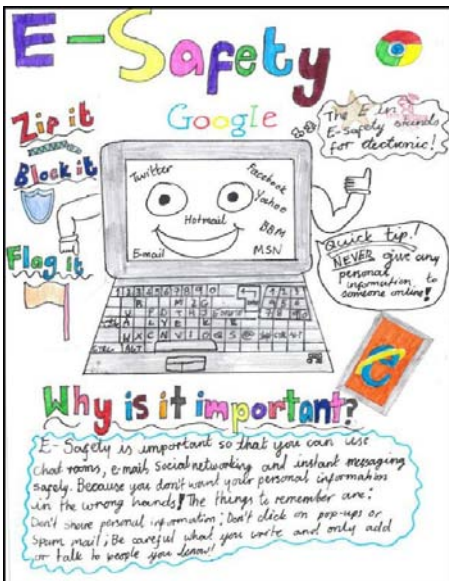 E-Safety
Google
Zip it
Block it
Flag it
The E in
E-Safety stands
for electronic!
Twitter
Facebook
Yahoo
Hotmail
BBM
E-mail
MSN
Quick tip!
NEVER give any
personal
information to
someone online!
Why is it important?
E-Safety is important so that you can use
chat rooms, e-mail, social networking and instant messaging
safely. Because you don't want your personal information
in the wrong hands! The things to remember are;
Don't share personal information; Don't click on pop-ups or
spam mail; Be careful what you write and only add
or talk to people you know!